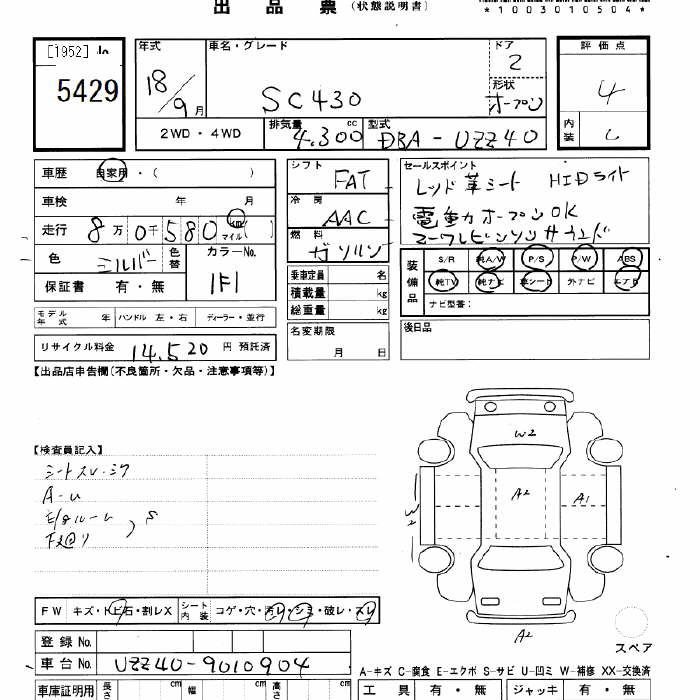 出品票 (状態説明書)
*1003010504*
[1952]
5429
年式 車名・グレード ドア 2
18/9月 SC430
形状 オープン
2WD・4WD 排気量 4.300 cc 型式 DBA-UZZ40
評価点 4
内装 C
車歴 自家用・( )
車検 年 月
走行 8万0千580 km マイル( )
色 シルバー 色替 カラーNo. 1F1
保証書 有・無
モデル年式 年 ハンドル 左・右 ディーラー・並行
リサイクル料金 14.520円 預託済
シフト FAT
冷房 AAC
燃料 ガソリン
乗車定員 名
積載量 kg
総重量 kg
名変期限 月 日
セールスポイント
レッド革シート HIDライト
電動オープンOK
マークレビンソンサウンド
装備品 S/R 純A/W P/S P/W ABS
純TV 純ナビ 革シート 外ナビ エアB
ナビ型番:
後日品
【出品店申告欄(不良箇所・欠品・注意事項等)】
【検査員記入】
シートスレ・シワ
A-U
E/gルーム
下廻り S
W2
A2
A1
W2
A2
スペア
FW キズ・トビ石・割レX シート内装 コゲ・穴・汚レ・シミ・破レ・スレ
登録No.
車台No. UZZ40-9010904
A-キズ C-腐食 E-エクボ S-サビ U-凹ミ W-補修 XX-交換済
車庫証明用 長さ cm 幅 cm 高さ cm
工具 有・無 ジャッキ 有・無